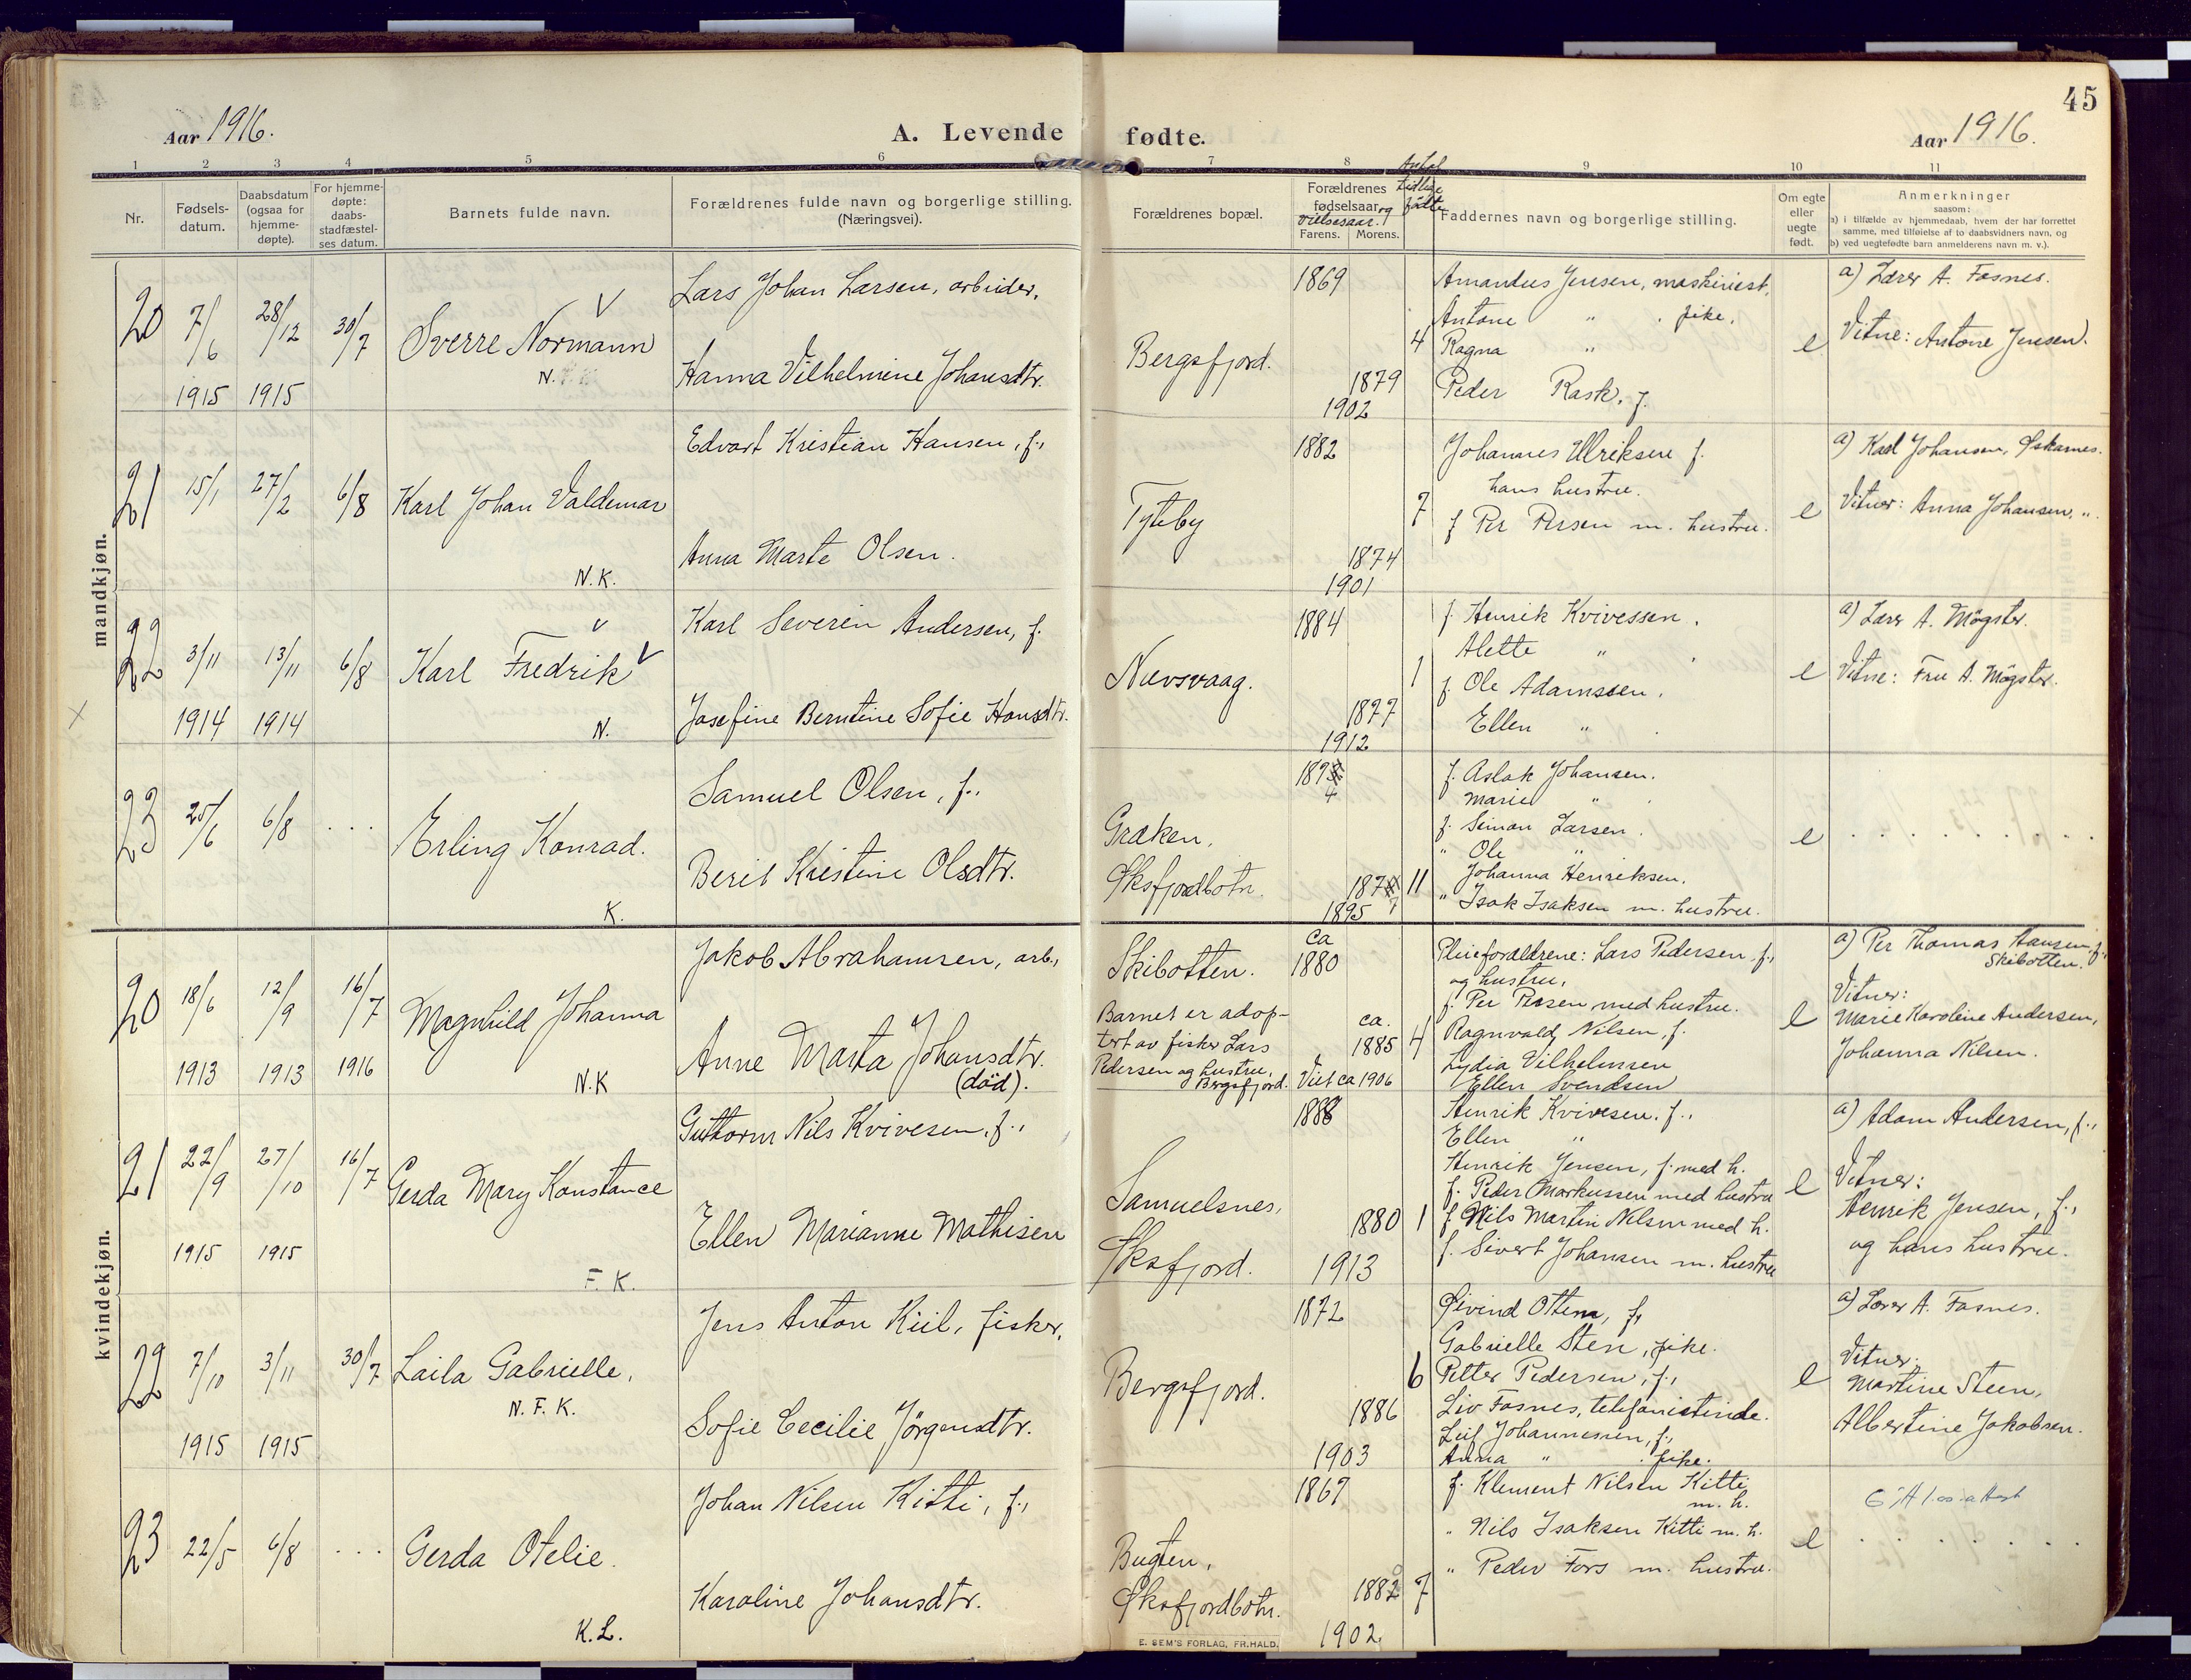 45
Aar 1916.
A. Levende fødte.
Aar 1916.
1 2 3 4 5 6 7 8 9 10 11
Nr.
Fødsels-
datum.
Daabsdatum
(ogsaa for
hjemme-
døpte).
For hjemme-
døpte:
daabs-
stadfæstel-
ses datum.
Barnets fulde navn.
Forældrenes fulde navn og borgerlige stilling.
(Næringsvei).
Forældrenes bopæl.
Forældrenes
fødselsaar og
vielsesaar.
Farens. Morens.
Antal
tidlige
fødte
Faddernes navn og borgerlige stilling.
Om egte
eller
uegte
født.
Anmerkninger
saasom:
a) i tilfælde av hjemmedaab, hvem der har forrettet
samme, med tilføielse af to daabsvidners navn, og
b) ved uegtefødte barn anmelderens navn m. v.).
mandkjøn.
20
7/6
1915
28/12
1915
30/7
Sverre Normann
N.
Lars Johan Larsen, arbeider,
Hanna Vilhelmine Johansdtr.
Bergsfjord.
1869
1879
1902
4
Amandus Jensen, maskinist,
Antone " . pike,
Ragna "
Peder Rask, f.
e
a) Lærer A. Fosnes.
Vitne: Antone Jensen.
21
15/1
27/2
6/8
Karl Johan Valdemar
N. K.
Edvart Kristian Hansen, f.,
Anna Marte Olsen.
Tyteby
1882
1874
1901
7
Johannes Ulriksen f.
hans hustru.
f Per Persen m. hustru.
e
a) Karl Johansen, Øskarnes.
Vitner: Anna Johansen, ".
22
3/11
1914
13/11
1914
6/8
Karl Fredrik
N.
Karl Severin Andersen, f.
Josefine Berntine Sofie Hansdtr.
Nuvsvaag.
1884
1877
1912
1
f. Henrik Kvivessen,
Alette "
f. Ole Adamssen,
Ellen "
e
a) Lærer A. Møgster.
Vitne: Fru A. Møgster.
23
25/6
6/8
. . .
Erling Konrad.
K.
Samuel Olsen, f.,
Berit Kristine Olsdtr.
Græken,
Øksfjordbotn.
1874
1877
1895
11
f. Aslak Johansen.
Marie "
f. Simon Larsen.
" Ole "
Johanna Henriksen.
" Isak Isaksen m. hustru.
e
kvindekjøn.
20
18/6
1913
12/9
1913
16/7
1916
Magnhild Johanna
N.K
Jakob Abrahamsen, arb.,
Anne Marta Johansdtr.
(død).
Skibotten.
Barnet er adop-
tert av fisker Lars
Pedersen og hustru,
Bergsfjord.
ca
1880
ca.
1885
Viet ca 1906
4
Pleieforældrene: Lars Pedersen, f.,
og hustru,
f. Per Persen med hustru.
Ragnvald Nilsen, f.
Lydia Vilhelmsen
Ellen Svendsen
e
a) Per Thomas Hansen, f.,
Skibotten.
Vitner:
Marie Karoline Andersen,
Johanna Nilsen.
21
22/9
1915
27/10
1915
16/7
Gerda Mary Konstance
F. K.
Guttorm Nils Kvivesen, f.,
Ellen Marianne Mathisen
Samuelsnes,
Øksfjord.
1888
1880
1913
1
Henrik Kvivesen, f.,
Ellen "
Henrik Jensen, f. med h.
f. Peder Markussen med hustru
f. Nils Martin Nilsen med h.
f. Sivert Johansen m. hustru
e
a) Adam Andersen, f.,
Vitner:
Henrik Jensen, f.,
og hans hustru.
22
7/10
1915
3/11
1915
30/7
Laila Gabrielle,
N. F. K.
Jens Anton Kiil, fisker,
Sofie Cecilie Jørgensdtr.
Bergsfjord.
1872
1886
1903
6
Øivind Ottem, f.,
Gabrielle Sten, pike.
Petter Pedersen, f.,
Liv Fosnes, telefonistinde.
Leif Johannessen, f.,
Anna " . pike.
e
a) Lærer A. Fosnes.
Vitner:
Martine Steen,
Albertine Jakobsen.
23
22/5
6/8
. . .
Gerda Otelie.
K. L.
Johan Nilsen Kitti, f.,
Karoline Johansdtr.
Bugten,
Øksfjordbotn.
1867
1882
1902
7
f. Klement Nilsen Kitti
m. h.
" Nils Isaksen Kitti m. h.
" Peder Fors m. hustru.
e
E. SEM'S FORLAG, FR.HALD.